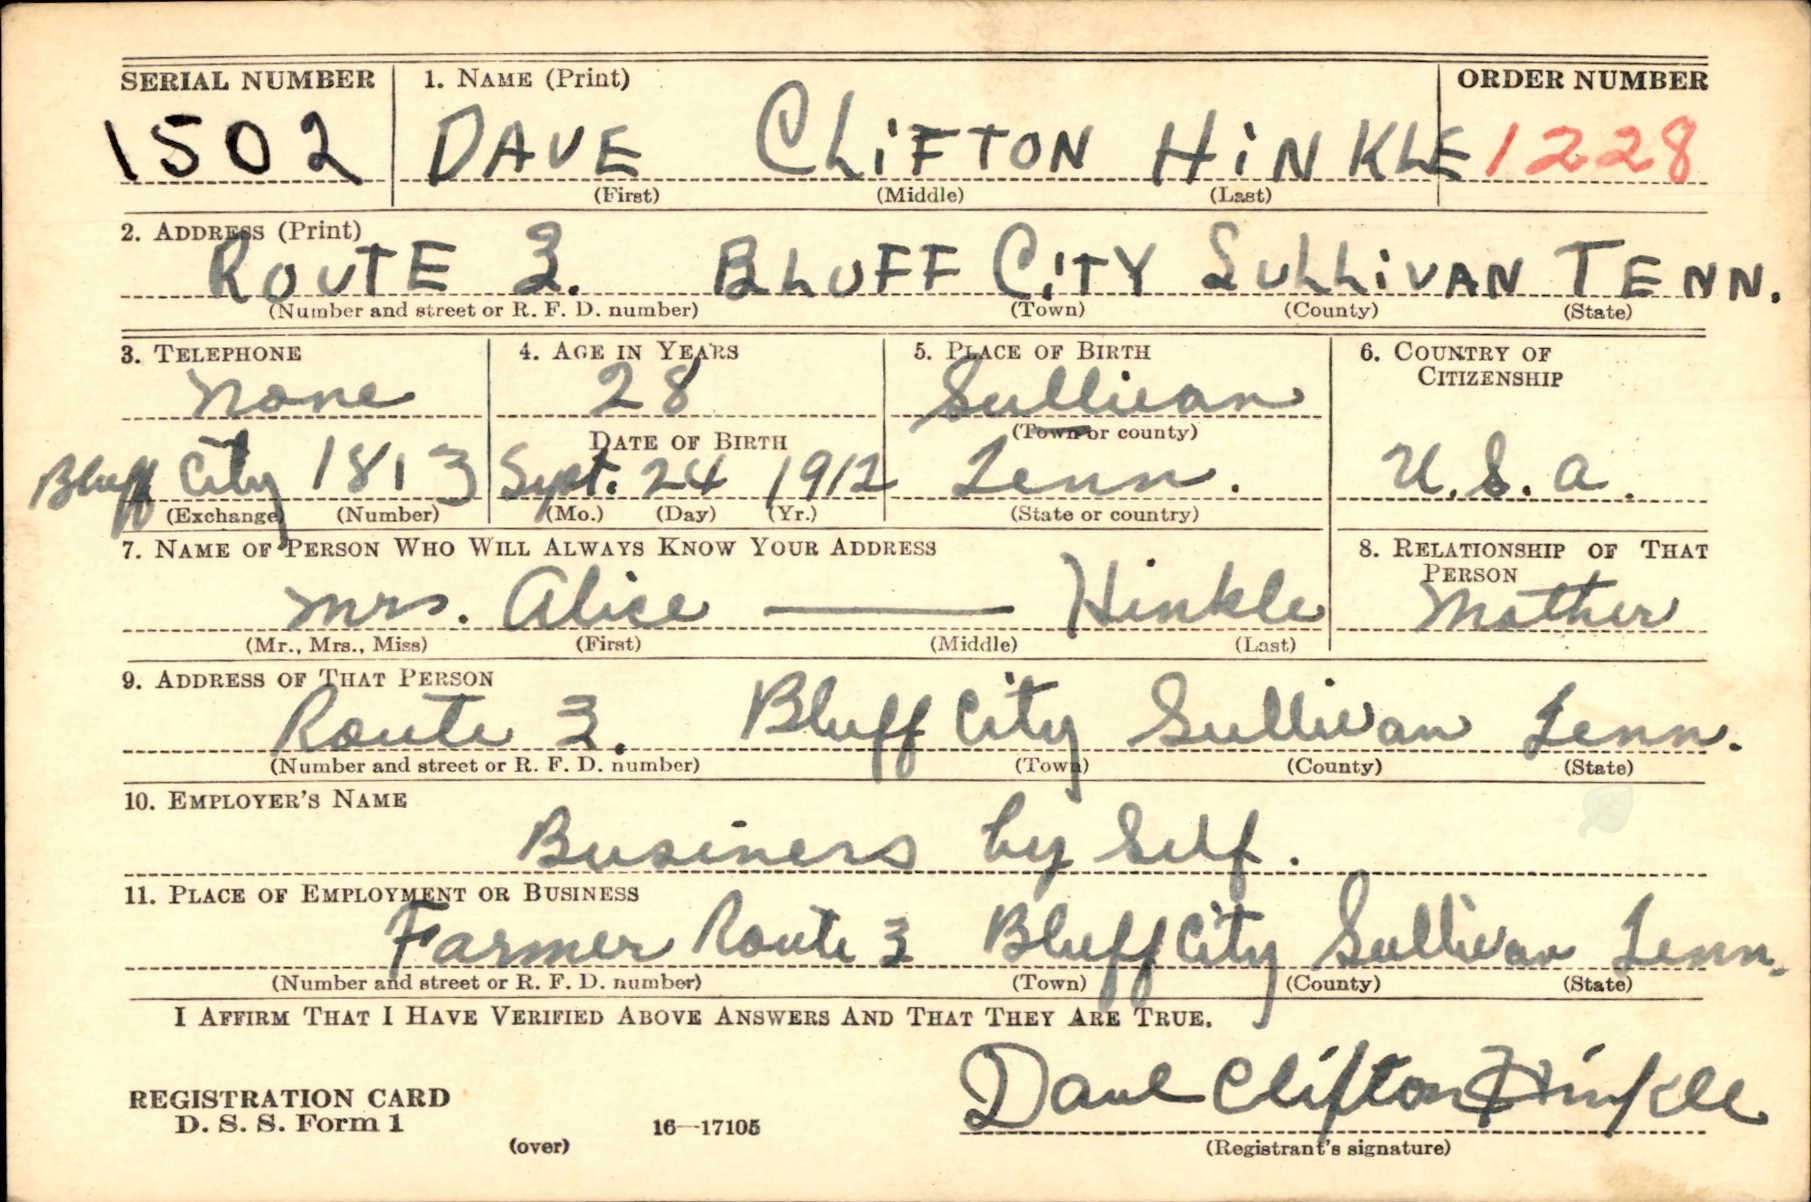 SERIAL NUMBER 1. NAME (Print) ORDER NUMBER
1502 DAVE CLiFTON HiNKLE 1228
(First) (Middle) (Last)
2. ADDRESS (Print)
ROUTE 3. BLUFF CiTY SULLiVAN TENN.
(Number and street or R. F. D. number) (Town) (County) (State)
3. TELEPHONE 4. AGE IN YEARS 5. PLACE OF BIRTH 6. COUNTRY OF CITIZENSHIP
None 28 Sullivan
DATE OF BIRTH (Town or county)
Bluff City 1813 Sept. 24 1912 Tenn. U.S.A.
(Exchange) (Number) (Mo.) (Day) (Yr.) (State or country)
7. NAME OF PERSON WHO WILL ALWAYS KNOW YOUR ADDRESS 8. RELATIONSHIP OF THAT PERSON
Mrs. Alice — Hinkle Mother
(Mr., Mrs., Miss) (First) (Middle) (Last)
9. ADDRESS OF THAT PERSON
Route 3. Bluff City Sullivan Tenn.
(Number and street or R. F. D. number) (Town) (County) (State)
10. EMPLOYER'S NAME
Business by Self.
11. PLACE OF EMPLOYMENT OR BUSINESS
Farmer Route 3 Bluff City Sullivan Tenn.
(Number and street or R. F. D. number) (Town) (County) (State)
I AFFIRM THAT I HAVE VERIFIED ABOVE ANSWERS AND THAT THEY ARE TRUE.
Dave Clifton Hinkle
REGISTRATION CARD
D. S. S. Form 1 (over) 16—17105 (Registrant's signature)